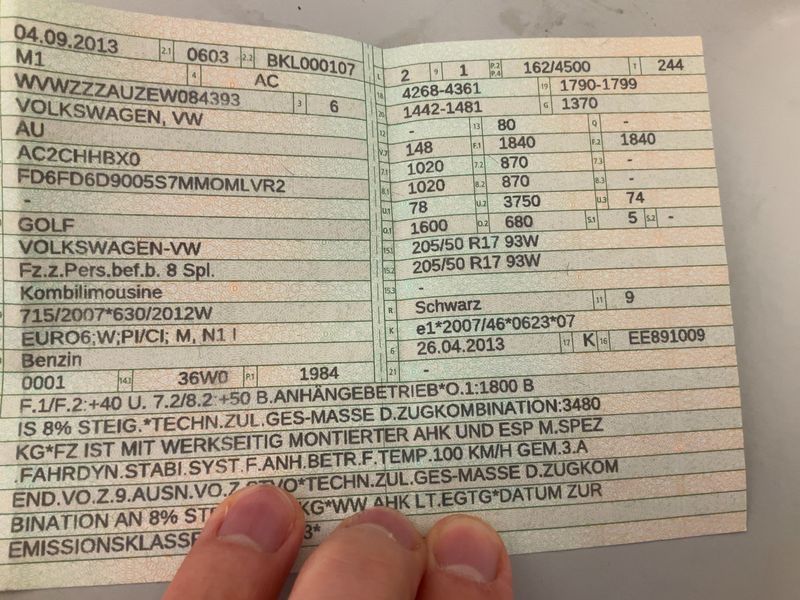 04.09.2013 2.1 0603 2.2 BKL000107
M1 4 AC
WVWZZZAUZEW084393 3 6
VOLKSWAGEN, VW
AU
AC2CHHBX0
FD6FD6D9005S7MMOMLVR2
-
GOLF
VOLKSWAGEN-VW
Fz.z.Pers.bef.b. 8 Spl.
Kombilimousine
715/2007*630/2012W
EURO6;W;PI/CI; M, N1 I
Benzin
0001 14.1 36W0 P.1 1984
L 2 9 1 P.2 P.4 162/4500 T 244
18 4268-4361 19 1790-1799
20 1442-1481 G 1370
12 - 13 80 Q -
V.7 148 F.1 1840 F.2 1840
7.1 1020 7.2 870 7.3 -
8.1 1020 8.2 870 8.3 -
U.1 78 U.2 3750 U.3 74
O.1 1600 O.2 680 S.1 5 S.2 -
15.1 205/50 R17 93W
15.2 205/50 R17 93W
15.3 -
R Schwarz 11 9
K e1*2007/46*0623*07
6 26.04.2013 17 K 16 EE891009
21 -
F.1/F.2:+40 U. 7.2/8.2:+50 B.ANHÄNGEBETRIEB*O.1:1800 B
IS 8% STEIG.*TECHN.ZUL.GES-MASSE D.ZUGKOMBINATION:3480
KG*FZ IST MIT WERKSEITIG MONTIERTER AHK UND ESP M.SPEZ
.FAHRDYN.STABI.SYST.F.ANH.BETR.F.TEMP.100 KM/H GEM.3.A
END.VO.Z.9.AUSN.VO.Z.STVO*TECHN.ZUL.GES-MASSE D.ZUGKOM
BINATION AN 8% KG*WW AHK LT.EGTG*DATUM ZUR
EMISSIONSKLASSE 3*